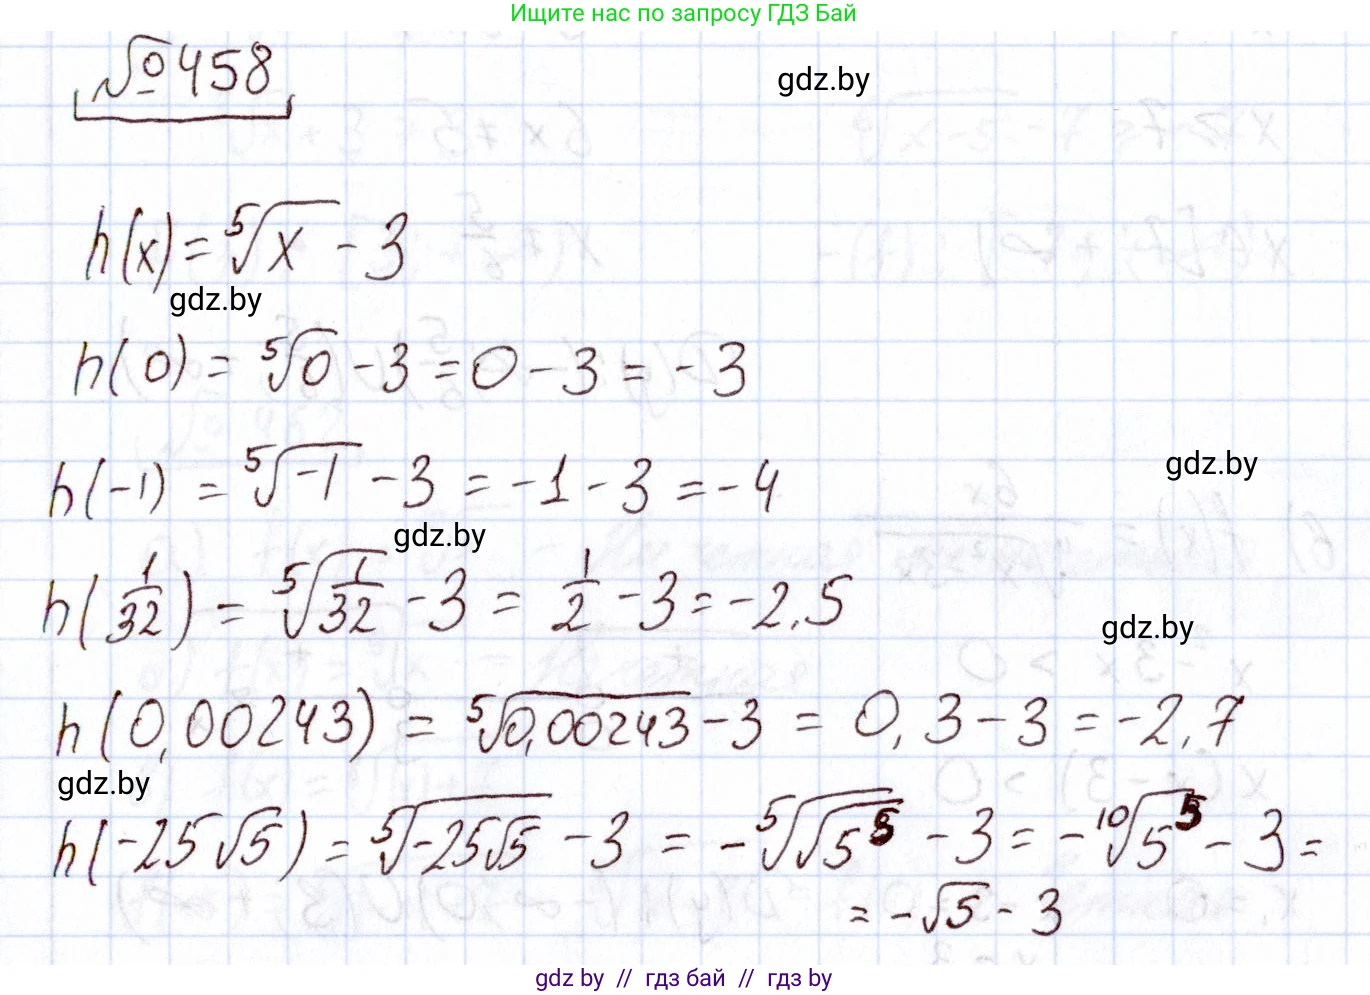 Ищите нас по запросу ГДЗ Бай
№458
gdz.by
h(x) = ⁵√x - 3
gdz.by
h(0) = ⁵√0 - 3 = 0 - 3 = -3
h(-1) = ⁵√-1 - 3 = -1 - 3 = -4
gdz.by
gdz.by
h(1/32) = ⁵√(1/32) - 3 = 1/2 - 3 = -2,5
gdz.by
h(0,00243) = ⁵√0,00243 - 3 = 0,3 - 3 = -2,7
gdz.by
h(-25√5) = ⁵√(-25√5) - 3 = -⁵√(√5⁵) - 3 = -¹⁰√5⁵ - 3 =
= -√5 - 3
gdz by // гдз бай // гдз by